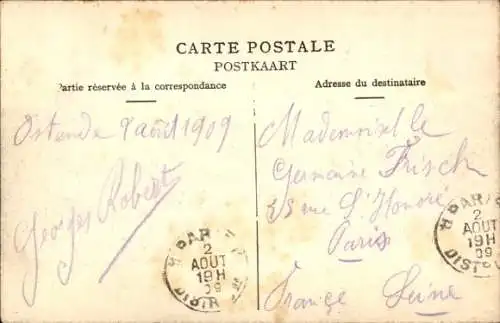 CARTE POSTALE
POSTKAART
Partie réservée à la correspondance
Adresse du destinataire
Ostende 9 août 1909
Georges Robert
Mademoiselle
Germaine Frisch
35 rue St Honoré
Paris
France Seine
PAR
2
AOUT
19H
09
DISTRIB
PAR
2
AOUT
19H
09
DIST